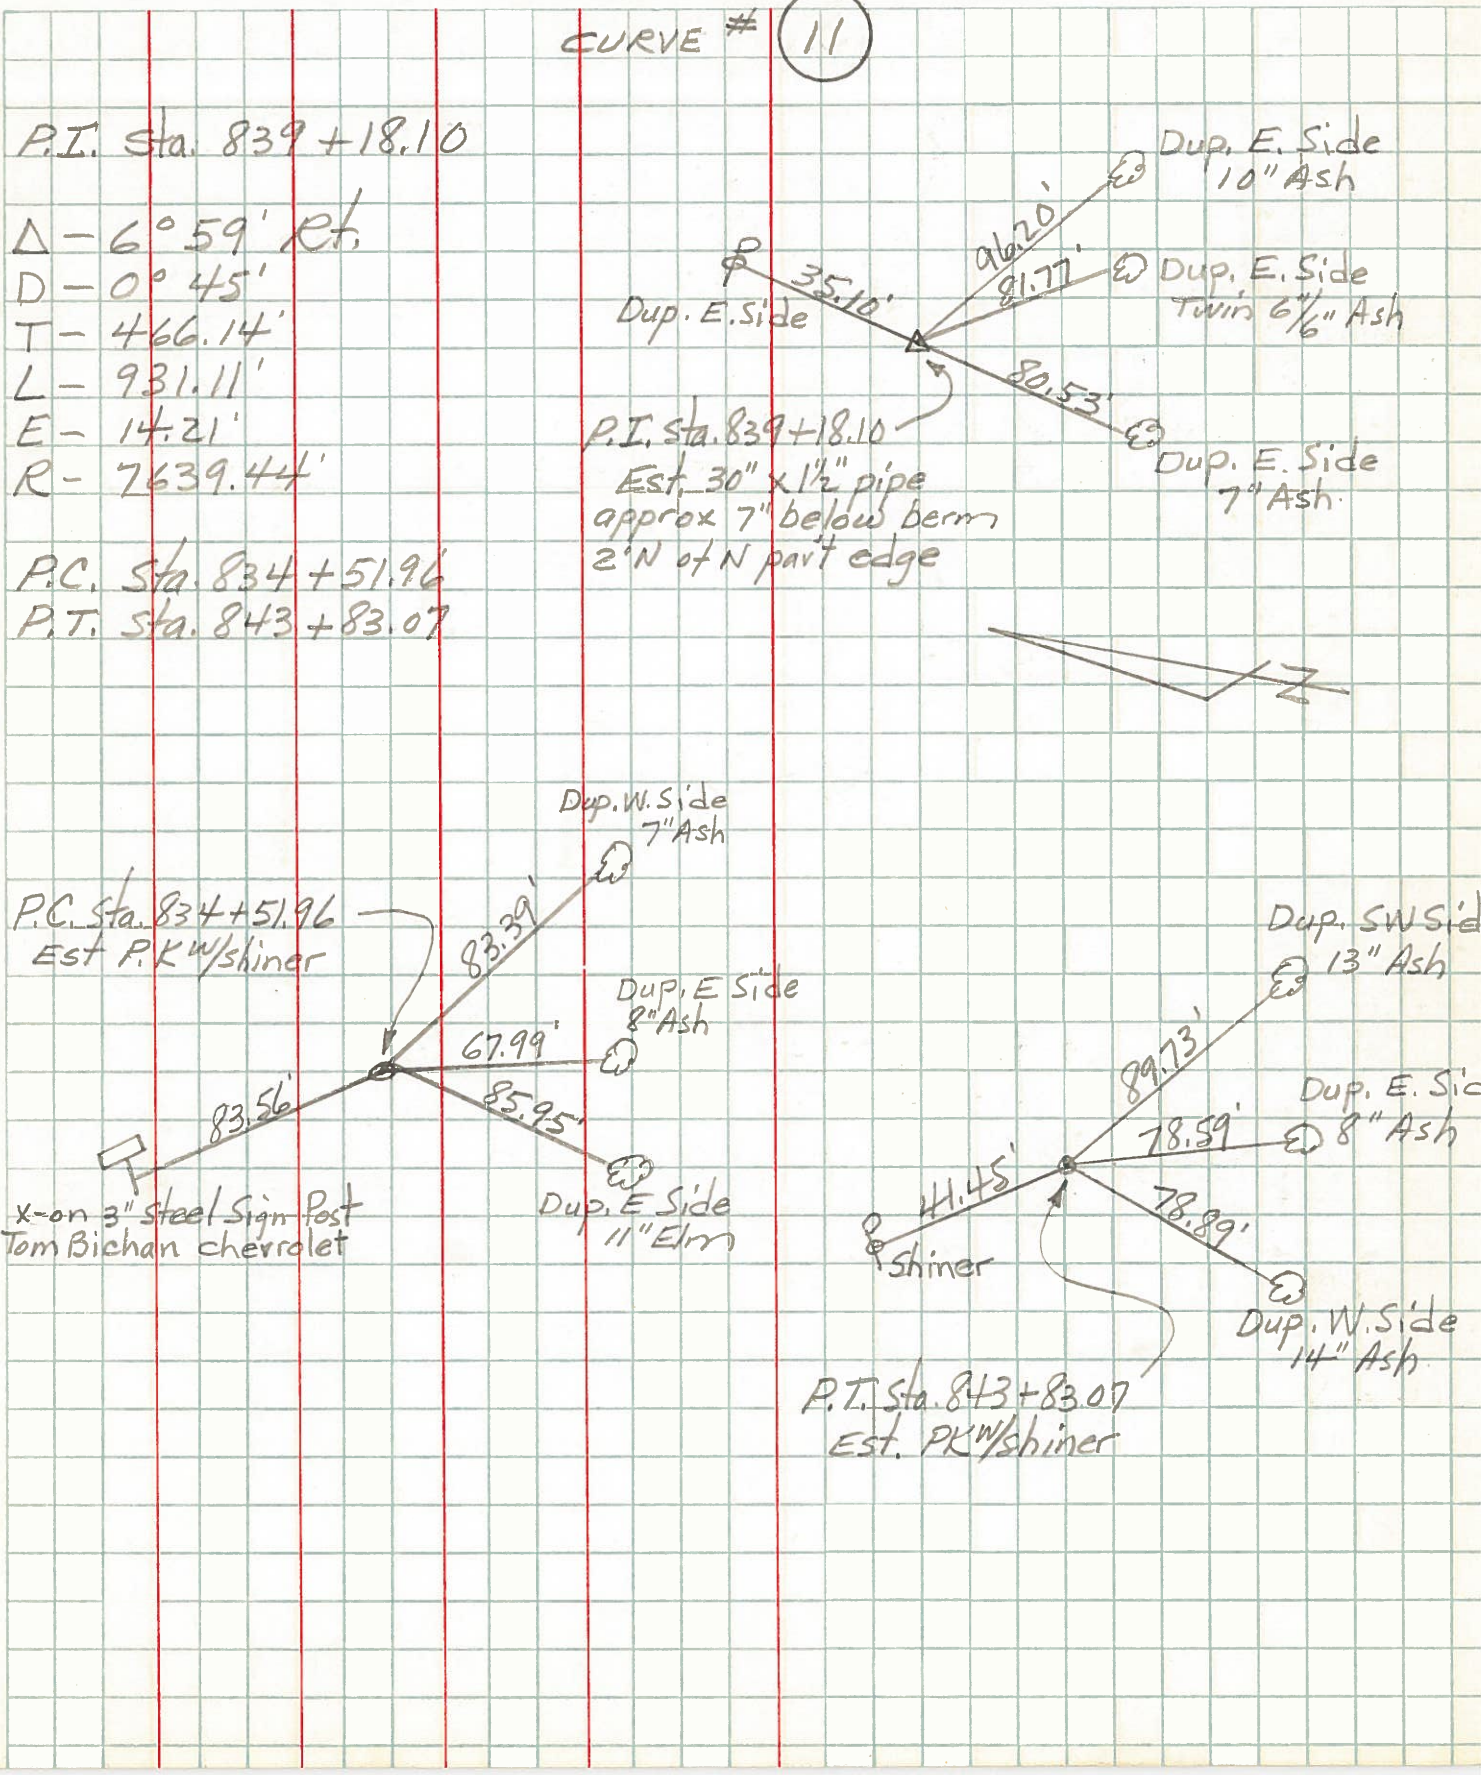 CURVE # 11
P.I. Sta. 839+18.10
Δ - 6° 59' Rt.
D - 0° 45'
T - 466.14'
L - 931.11'
E - 14.21'
R - 7639.44'
P.C. Sta. 834+51.96
P.T. Sta. 843+83.07
Dup. E. Side
10" Ash
96.20'
81.77'
Dup. E. Side
Twin 6"/6" Ash
35.10'
Dup. E. Side
80.53'
Dup. E. Side
7" Ash
P.I. Sta. 839+18.10
Est. 30" x 1½" pipe
approx 7" below berm
2'N of N pav't edge
N
Dup. W. Side
7" Ash
P.C. Sta. 834+51.96
Est P.K W/shiner
83.39'
Dup. E Side
8" Ash
67.99'
85.95'
83.56'
Dup. E Side
11" Elm
X-on 3" Steel Sign Post
Tom Bichan chevrolet
Dup. SW Sid
13" Ash
89.73'
Dup. E. Sid
8" Ash
78.59'
41.45'
78.89'
Shiner
Dup. W. Side
14" Ash
P.T. Sta. 843+83.07
Est. PK W/shiner